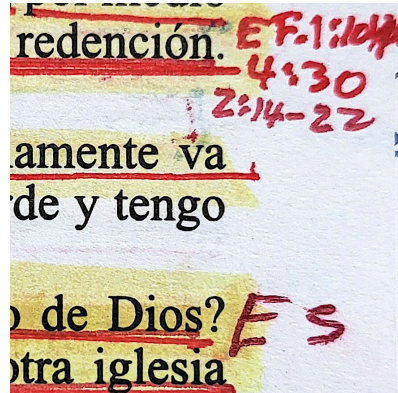 por medio
redención. EF.1:10,14
4:30
2:14-22
lamente va
de y tengo
de Dios? ES
otra iglesia